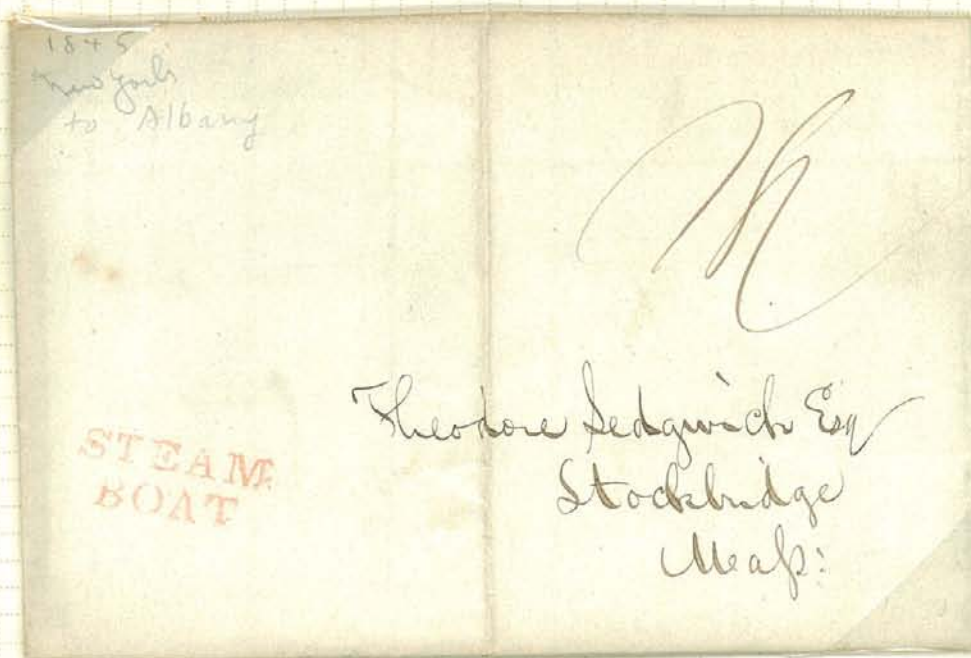 1845
New York
to Albany
STEAM
BOAT
Theodore Sedgwick Esq
Stockbridge
Maſs: